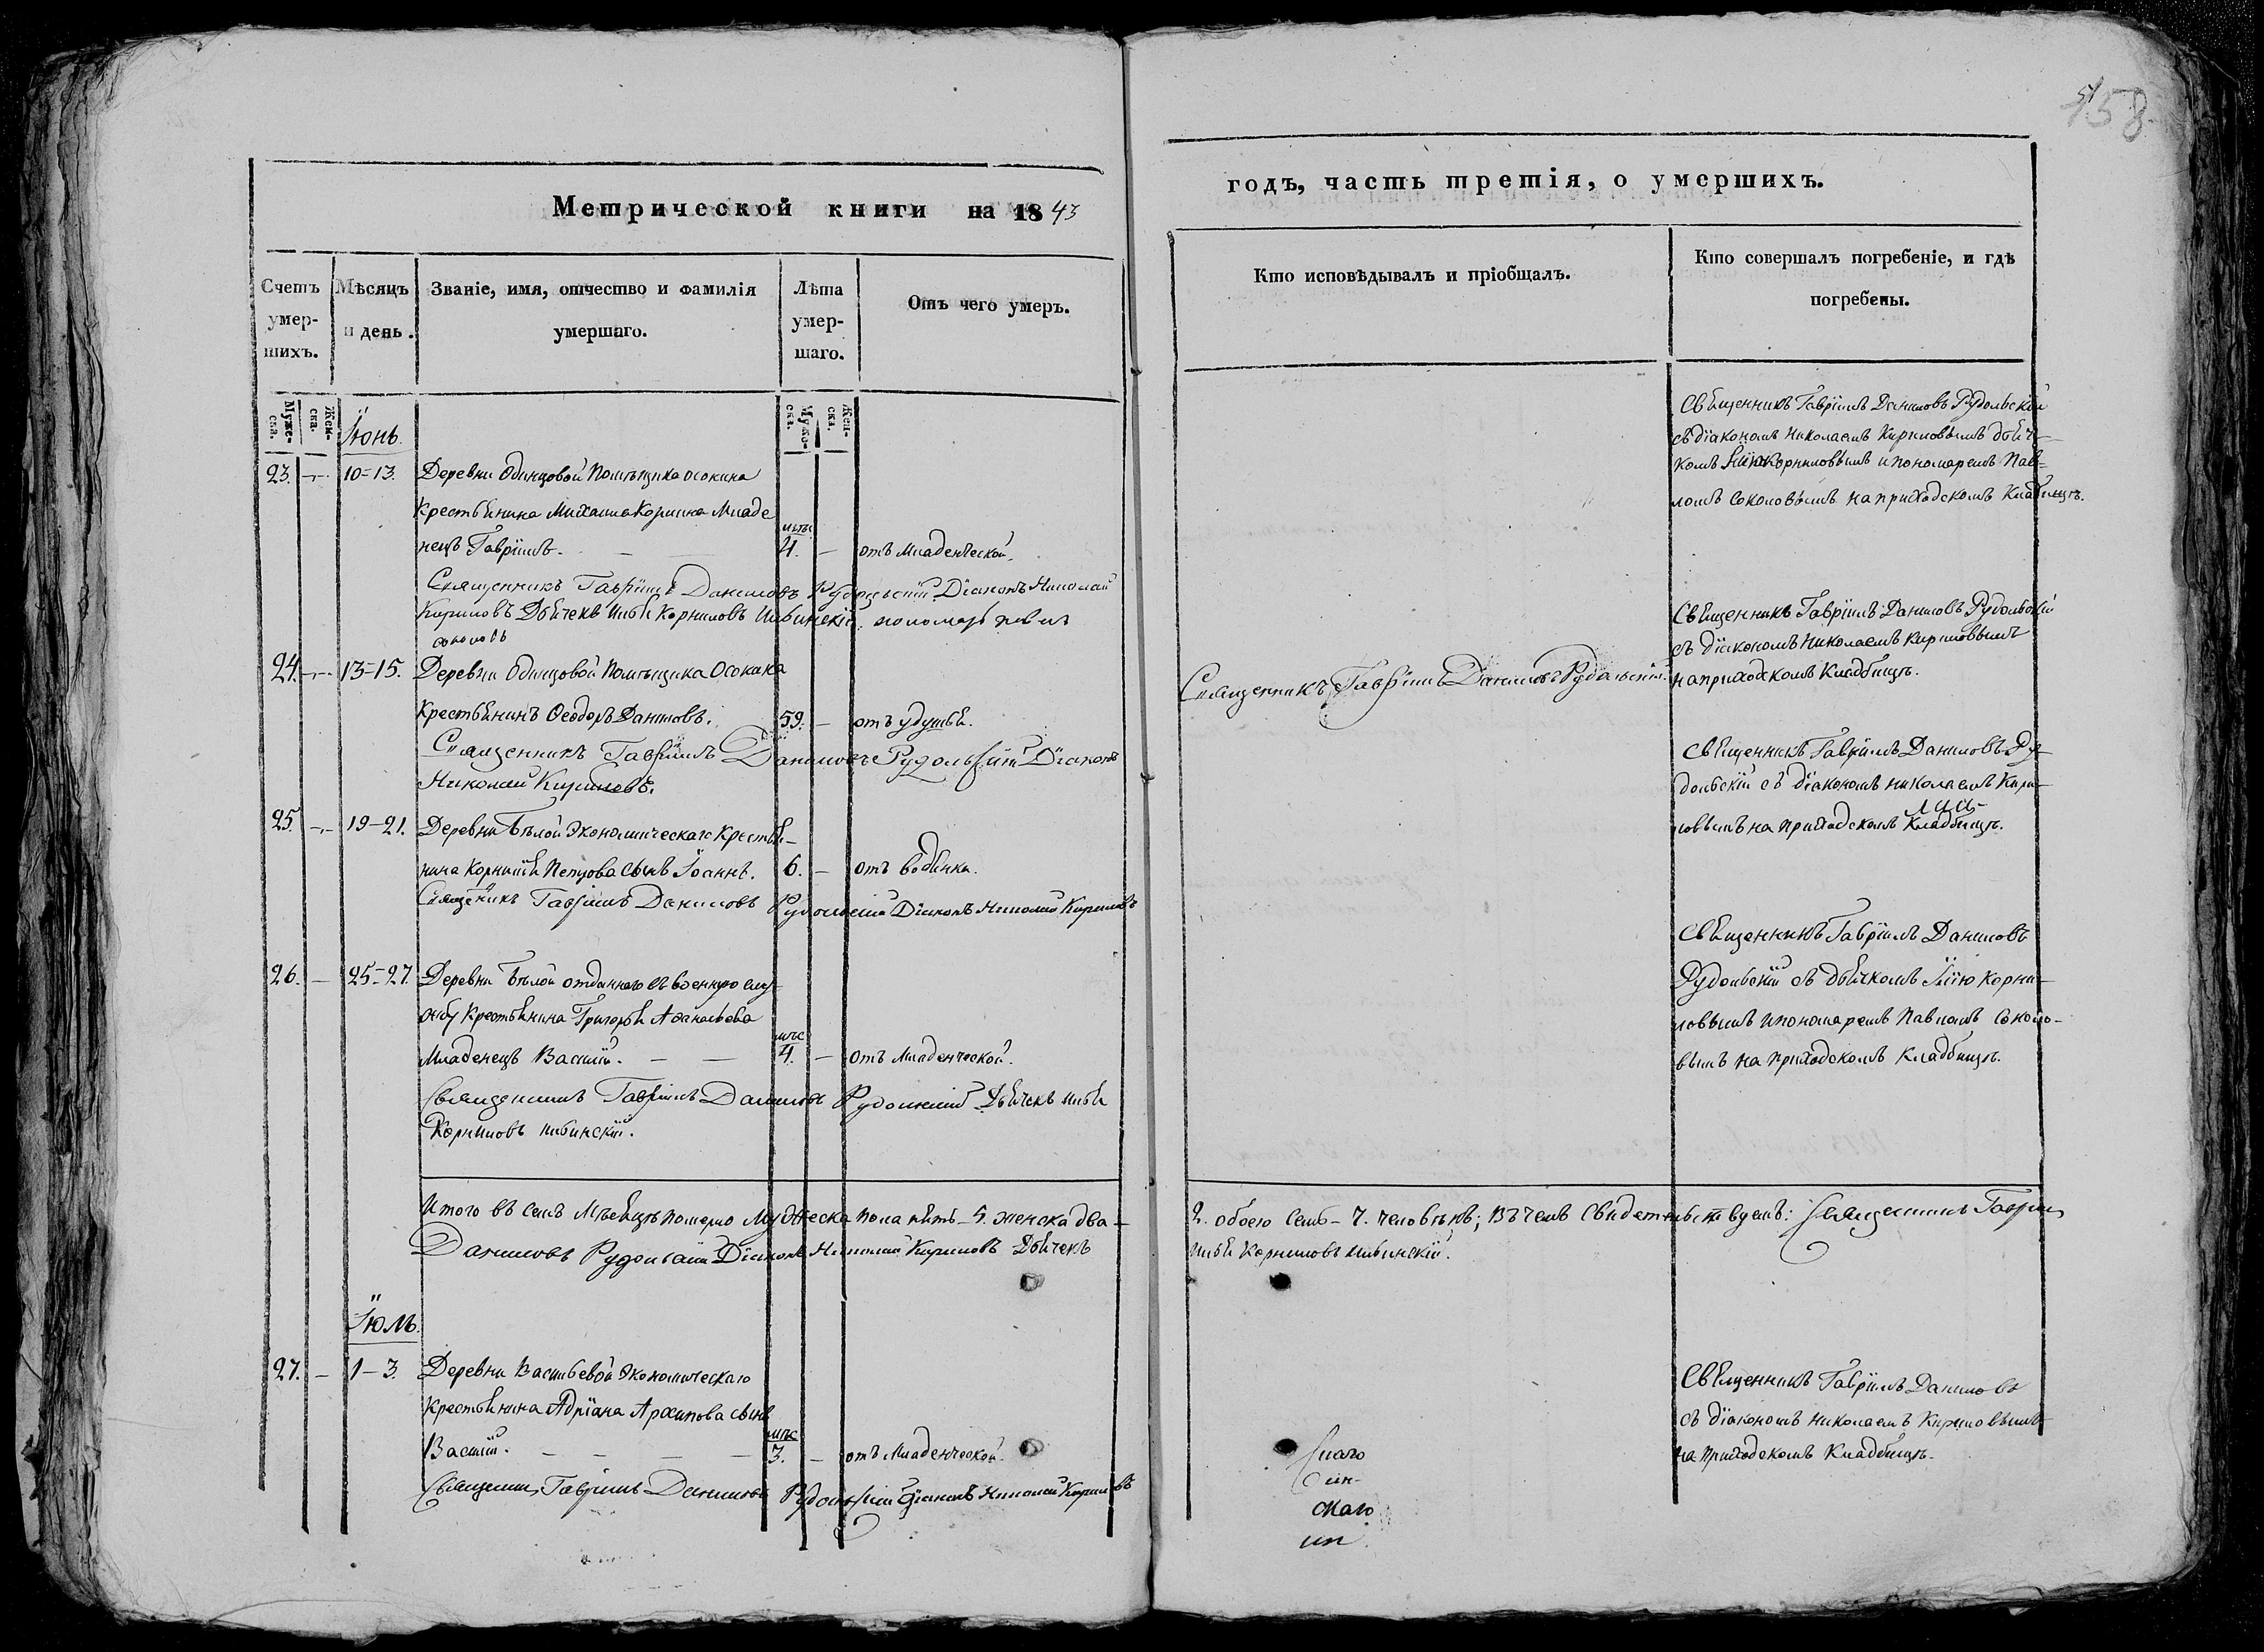 58
Метрической книги на 1843
годъ, часть третія, о умершихъ.
Счетъ умер-шихъ.
Мѣсяцъ и день.
Званіе, имя, отчество и фамилія умершаго.
Лѣта умер-шаго.
Отъ чего умеръ.
Кто исповѣдывалъ и пріобщалъ.
Кто совершалъ погребеніе, и гдѣ погребены.
Муже-ска.
Жен-ска.
Муже-ска.
Жен-ска.
Іюнь.
23. — 10-13. Деревни Одинцовой Помѣщика Осокина
Крестьянина Михаила Корнила Младе
нецъ Гавріилъ. — — мѣс 4. — отъ младенческой.
Священникъ Гавріилъ Даниловъ Рудольскій Діаконъ Николай
Кириловъ Дьячекъ Илья Корниловъ Ильинскій. пономарь павелъ
соколовъ
Священникъ Гавріилъ Даниловъ Рудольскій
съ діакономъ Николаемъ Кириловымъ дьяч-
комъ Ильею Корниловымъ и пономаремъ Пав-
ломъ Соколовымъ на приходскомъ Кладбищѣ.
24. — 13-15. Деревни Одинцовой Помѣщика Осокина
Крестьянинъ Ѳеодоръ Даниловъ. 59. — отъ удушья.
Священникъ Гавріилъ Даниловъ Рудольскій Діаконъ
Николай Кириловъ.
Священникъ Гавріилъ Даниловъ Рудольскій.
Священникъ Гавріилъ Даниловъ Рудольскій
съ діакономъ Николаемъ Кириловымъ
на приходскомъ Кладбищѣ.
25. — 19-21. Деревни Бѣлой Экономическаго Крестья-
нина Корнилія Петрова сынъ Іоаннъ. 6. — отъ водянки.
Священникъ Гавріилъ Даниловъ Рудольскій Діаконъ Николай Кириловъ
Священникъ Гавріилъ Даниловъ Ру-
дольскій съ діакономъ николаемъ Кири-
ловымъ на приходскомъ Кладбищѣ.
26. — 25-27. Деревни Бѣлой отданнаго въ военную слу-
жбу Крестьянина Григорья Аѳанасьева
Младенецъ Василій. — — мѣс 4. — отъ младенческой.
Священникъ Гавріилъ Даниловъ Рудольскій Дьячекъ илья
Корниловъ ильинскій.
Священникъ Гавріилъ Даниловъ
Рудольскій съ дьячкомъ Ильею Корни-
ловымъ и пономаремъ Павломъ Соколо-
вымъ на приходскомъ Кладбищѣ.
Итого въ семъ мѣсяцѣ померло мужеска пола пять - 5. женска два - 2. обоего семь - 7. человѣкъ; Въ чемъ свидетельствуемъ: Священникъ Гавріилъ
Даниловъ Рудольскій Діаконъ Николай Кириловъ Дьячекъ илья Корниловъ ильинскій.
Іюль.
27. — 1-3. Деревни Васильевой Экономическаго
Крестьянина Адріана Архипова сынъ
Василій. — — — — мѣс 3. — отъ младенческой.
Священникъ Гавріилъ Даниловъ Рудольскій Діаконъ Николай Кириловъ
Священникъ Гавріилъ Даниловъ
съ діакономъ николаемъ Кириловымъ
на приходскомъ Кладбищѣ.
скаго